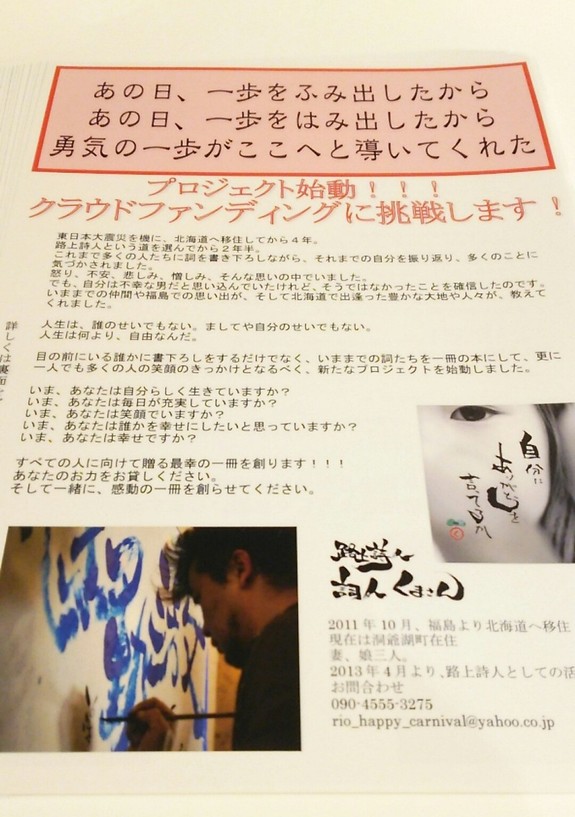 あの日、一歩をふみ出したから
あの日、一歩をはみ出したから
勇気の一歩がここへと導いてくれた
プロジェクト始動！！！
クラウドファンディングに挑戦します！
東日本大震災を機に、北海道へ移住してから４年。
路上詩人という道を選んでから２年半。
これまで多くの人たちに詞を書き下ろしながら、それまでの自分を振り返り、多くのことに
気づかされました。
怒り、不安、悲しみ、憎しみ、そんな思いの中でいました。
でも、自分は不幸な男だと思い込んでいたけれど、そうではなかったことを確信したのです。
いままでの仲間や福島での思い出が、そして北海道で出逢った豊かな大地や人々が、教えて
くれました。
人生は、誰のせいでもない。ましてや自分のせいでもない。
人生は何より、自由なんだ。
目の前にいる誰かに書下ろしをするだけでなく、いままでの詞たちを一冊の本にして、更に
一人でも多くの人の笑顔のきっかけとなるべく、新たなプロジェクトを始動しました。
いま、あなたは自分らしく生きていますか？
いま、あなたは毎日が充実していますか？
いま、あなたは笑顔でいますか？
いま、あなたは誰かを幸せにしたいと思っていますか？
いま、あなたは幸せですか？
すべての人に向けて贈る最幸の一冊を創ります！！！
あなたのお力をお貸しください。
そして一緒に、感動の一冊を創らせてください。
詳しくは裏面で
自分に
ありがとうを
言ってるかい
路上詩人
詞人くまさん
2011年10月、福島より北海道へ移住
現在は洞爺湖町在住
妻、娘三人。
2013年4月より、路上詩人としての活
お問合わせ
090-4555-3275
rio_happy_carnival@yahoo.co.jp